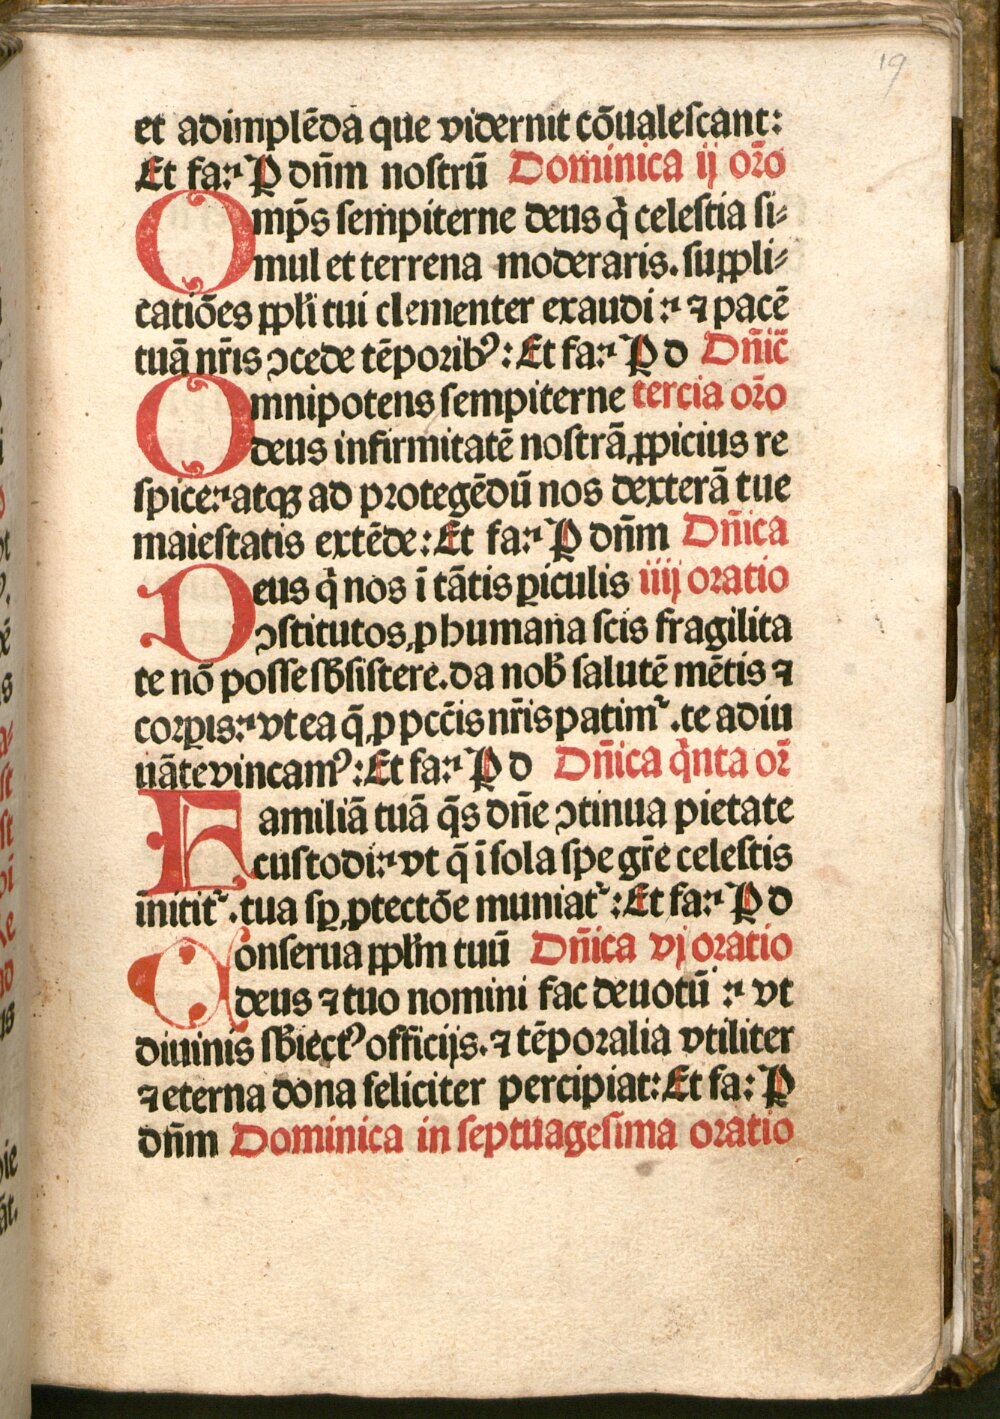 19
et adimplēda que vidernit cōualeſcant:
Et fa:² P dn̄m noſtrū Dominica ij or̄o
Omp̄s ſempiterne deus q̄ celeſtia ſi⸗
mul et terrena moderaris. ſuppli⸗
catiōes ppl̄i tui clementer exaudi:² ⁊ pacē
tuā nr̄is ↄcede tēporibꝰ: Et fa:² P d Dn̄ic̄
Omnipotens ſempiterne tercia or̄o
deus infirmitatē noſtrā ꝓpicius re
ſpice:² atqꝫ ad protegēdū nos dexterā tue
maieſtatis extēde: Et fa:² P dn̄m Dn̄ica
Deus q̄ nos ī tātis ꝑiculis iiij oratio
ↄſtitutos, ꝓ humana ſcis fragilita
te nō poſſe ſb̄ſiſtere. da nob̄ ſalutē mētis ⁊
corꝑis:² vt ea q̄ ꝓ pcc̄is nr̄is patim᷑. te adiu
uāte vincamꝰ: Et fa:² P d Dn̄ica q̄nta or̄
Familiā tuā q̄s dn̄e ↄtinua pietate
cuſtodi:² vt q̄ ī ſola ſpe gr̄e celeſtis
īnitit᷑. tua ſꝑ ꝓtectōe muniat᷑: Et fa:² P d
Conſerua ppl̄m tuū Dn̄ica vj oratio
deus ⁊ tuo nomini fac deuotū:² vt
diuinis ſb̄iectꝰ officijs. ⁊ tēporalia vtiliter
⁊ eterna dona feliciter percipiat: Et fa: P
dn̄m Dominica in ſeptuageſima oratio